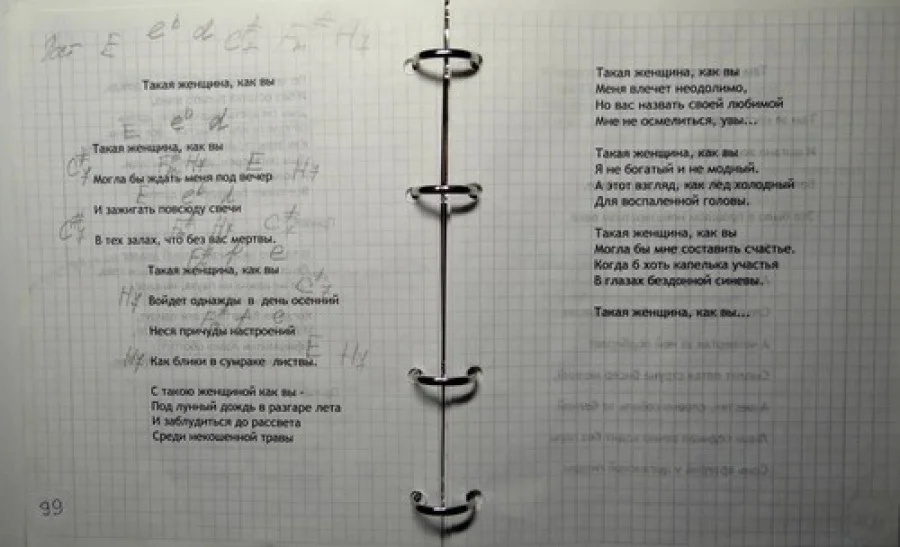 E e♭ d C#7 F# H7
Такая женщина, как вы
E e♭ d
Такая женщина, как вы
C#7 F# H7 E H7
Могла бы ждать меня под вечер
E e♭ d
И зажигать повсюду свечи
C#7 F# H7 C#7
В тех залах, что без вас мертвы.
F# e
Такая женщина, как вы
C#7
H7 Войдет однажды в день осенний
F# A e
Неся причуды настроений
E H7
H7 Как блики в сумраке листвы.
С такою женщиной как вы -
Под лунный дождь в разгаре лета
И заблудиться до рассвета
Среди некошенной травы
99
Такая женщина, как вы
Меня влечет неодолимо,
Но вас назвать своей любимой
Мне не осмелиться, увы...
Такая женщина, как вы
Я не богатый и не модный.
А этот взгляд, как лед холодный
Для воспаленной головы.
Такая женщина, как вы
Могла бы мне составить счастье.
Когда б хоть капелька участья
В глазах бездонной синевы.
Такая женщина, как вы...